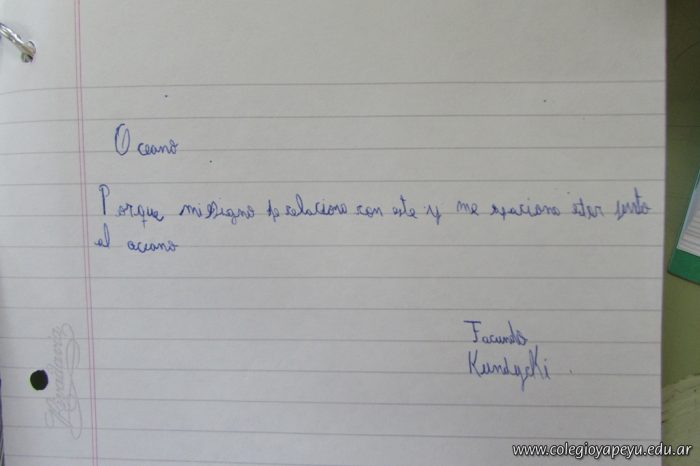 Oceano
Porque mi signo se relaciona con este y me relaciona estar junto
al oceano
Facundo
Kundycki
Rivadavia
www.colegioyapeyu.edu.ar